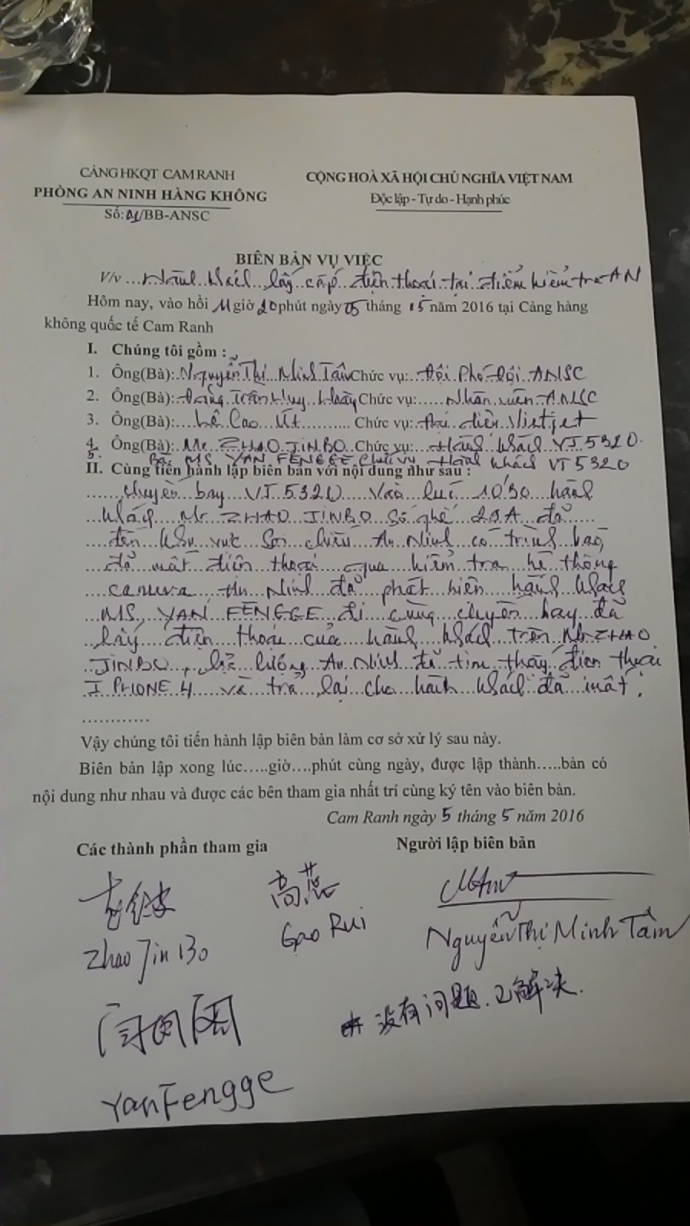 CẢNG HKQT CAM RANH
PHÒNG AN NINH HÀNG KHÔNG
Số: 01/BB-ANSC
CỘNG HOÀ XÃ HỘI CHỦ NGHĨA VIỆT NAM
Độc lập - Tự do - Hạnh phúc
BIÊN BẢN VỤ VIỆC
V/v ... Hành khách lấy cắp điện thoại tại điểm kiểm tra AN
Hôm nay, vào hồi 11 giờ 20 phút ngày 05 tháng 05 năm 2016 tại Cảng hàng
không quốc tế Cam Ranh
I. Chúng tôi gồm :
1. Ông(Bà): Nguyễn Thị Minh Tâm Chức vụ: Đội Phó Đội ANSC
2. Ông(Bà): Đặng Trần Huy Chức vụ: Nhân viên ANSC
3. Ông(Bà): Lê Cao Chức vụ: đại diện Vietjet
4. Ông(Bà): Mr. ZHAO JINBO Chức vụ: Hành khách VJ 5320
5. Bà MS YAN FENGGE Chức vụ Hành khách VJ 5320
II. Cùng tiến hành lập biên bản với nội dung như sau :
Chuyến bay VJ 5320 Vào lúc 10h30 hành
khách Mr ZHAO JINBO Số ghế 29A đã
đến khu vực Soi chiếu An Ninh có trình báo
đã mất điện thoại qua kiểm tra hệ thống
camera An Ninh đã phát hiện hành khách
MS, YAN FENGGE đi cùng chuyến bay đã
lấy điện thoại của hành khách trên Mr. ZHAO
JINBO, lực lượng An Ninh đã tìm thấy điện thoại
I PHONE 4 và trả lại cho hành khách đã mất.
Vậy chúng tôi tiến hành lập biên bản làm cơ sở xử lý sau này.
Biên bản lập xong lúc.....giờ....phút cùng ngày, được lập thành.....bản có
nội dung như nhau và được các bên tham gia nhất trí cùng ký tên vào biên bản.
Cam Ranh ngày 5 tháng 5 năm 2016
Các thành phần tham gia
Người lập biên bản
高蕊
Zhao Jin Bo
Gao Rui
Nguyễn Thị Minh Tâm
没有问题.已解决.
Yan Fengge